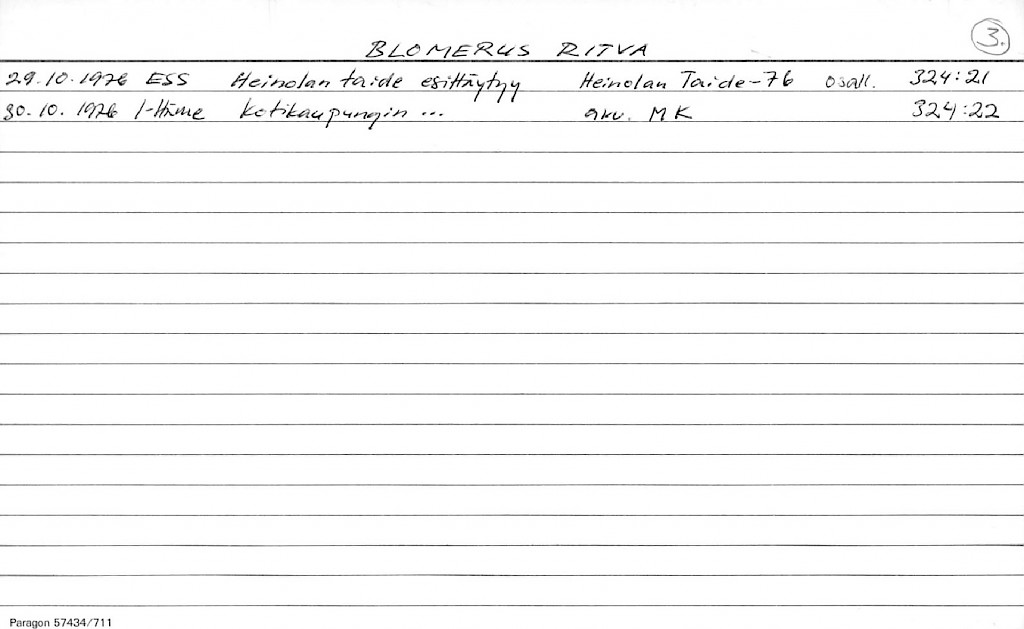 3.
BLOMERUS RITVA
29.10.1976 ESS Heinolan taide esittäytyy Heinolan Taide-76 osall. 324:21
30.10.1976 I-Häme Kotikaupungin ... arv. MK 324:22
Paragon 57434/711